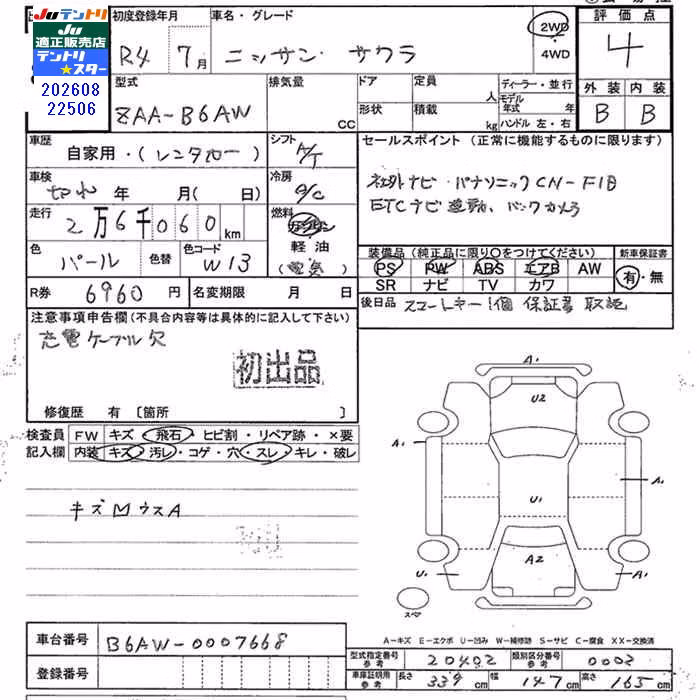 Juテントリ
JU
適正販売店
テントリ
★スター
202608
22506
初度登録年月
R4 7月
車名・グレード
ニッサン サクラ
2WD
・
4WD
評価点
4
外装 内装
B B
型式
ZAA-B6AW
排気量
CC
ドア
形状
定員
人
積載
kg
ディーラー・並行
モデル
年式 年
ハンドル 左・右
車歴
自家用・(レンタカー)
シフト
A/T
車検
切れ 年 月(日)
冷房
A/C
走行
2万6千060km
燃料
ガソリン
軽油
(電気)
色
パール
色替
色コード
W13
R券 6960円
名変期限 月 日
セールスポイント(正常に機能するものに限ります)
社外ナビ・パナソニックCN-F1D
ETCナビ連動、バックカメラ
装備品(純正品に限り○をつけてください)
PS PW ABS エアB AW
SR ナビ TV カワ
新車保証書
有・無
後日品 スマートキー1個 保証書 取説
注意事項申告欄(不具合内容等は具体的に記入して下さい)
充電ケーブル欠
初出品
修復歴 有 [箇所 ]
検査員
記入欄
FW キズ・飛石・ヒビ割・リペア跡・×要
内装 キズ・汚レ・コゲ・穴・スレ・キレ・破レ
キズ凹ウスA
A1
U2
A1
A1
U1
A2
U1
A1
スペア
A-キズ E-エクボ U-凹み W-補修跡 S-サビ C-腐食 XX-交換済
車台番号 B6AW-0007668
登録番号
型式指定番号
参考
20402
類別区分番号
参考
0003
車庫証明用
参考
長さ 339cm 幅 147cm 高さ 165cm